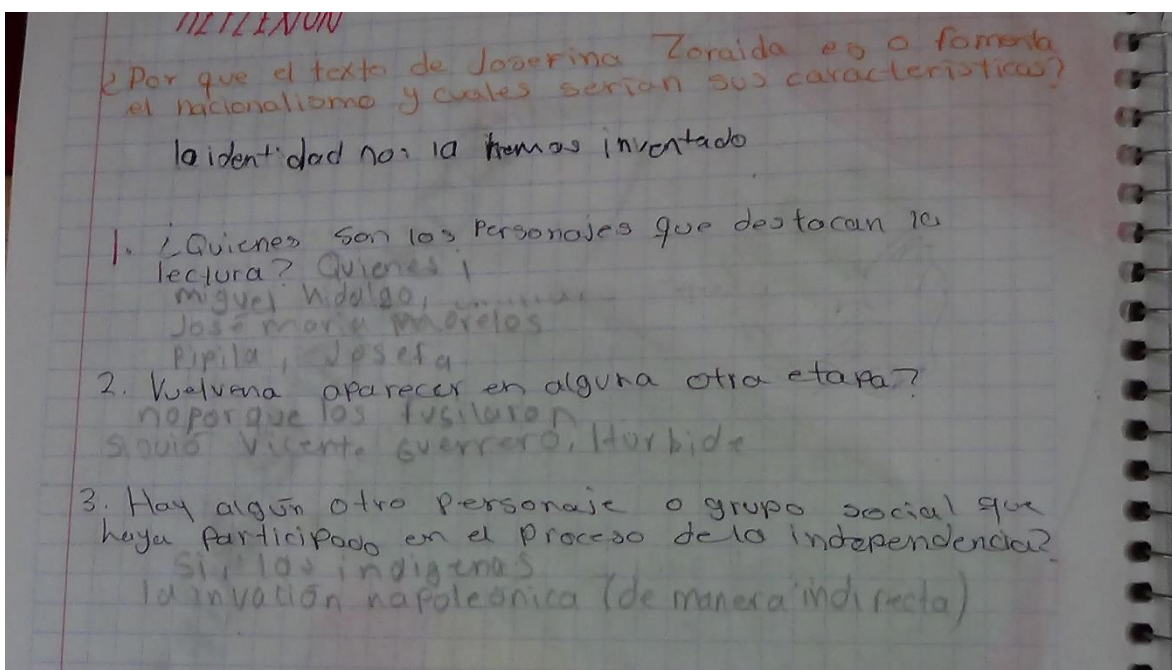 REFLEXION
¿Por que el texto de Joserina Zoraida es o fomenta
el nacionalismo y cuales serian sus caracteristicas?
la identidad nos la hemos inventado
1. ¿Quienes son los Personajes que destacan la
lectura? Quienes
miguel hidalgo,
José maria morelos
Pipila, Josefa
2. Vuelvena aparecer en alguna otra etapa?
no porque los fusilaron
siguió Vicente Guerrero, Iturbide
3. Hay algún otro personaje o grupo social que
haya Participado en el Proceso de la independencia?
Si, los indigenas
la invación napoleónica (de manera indirecta)